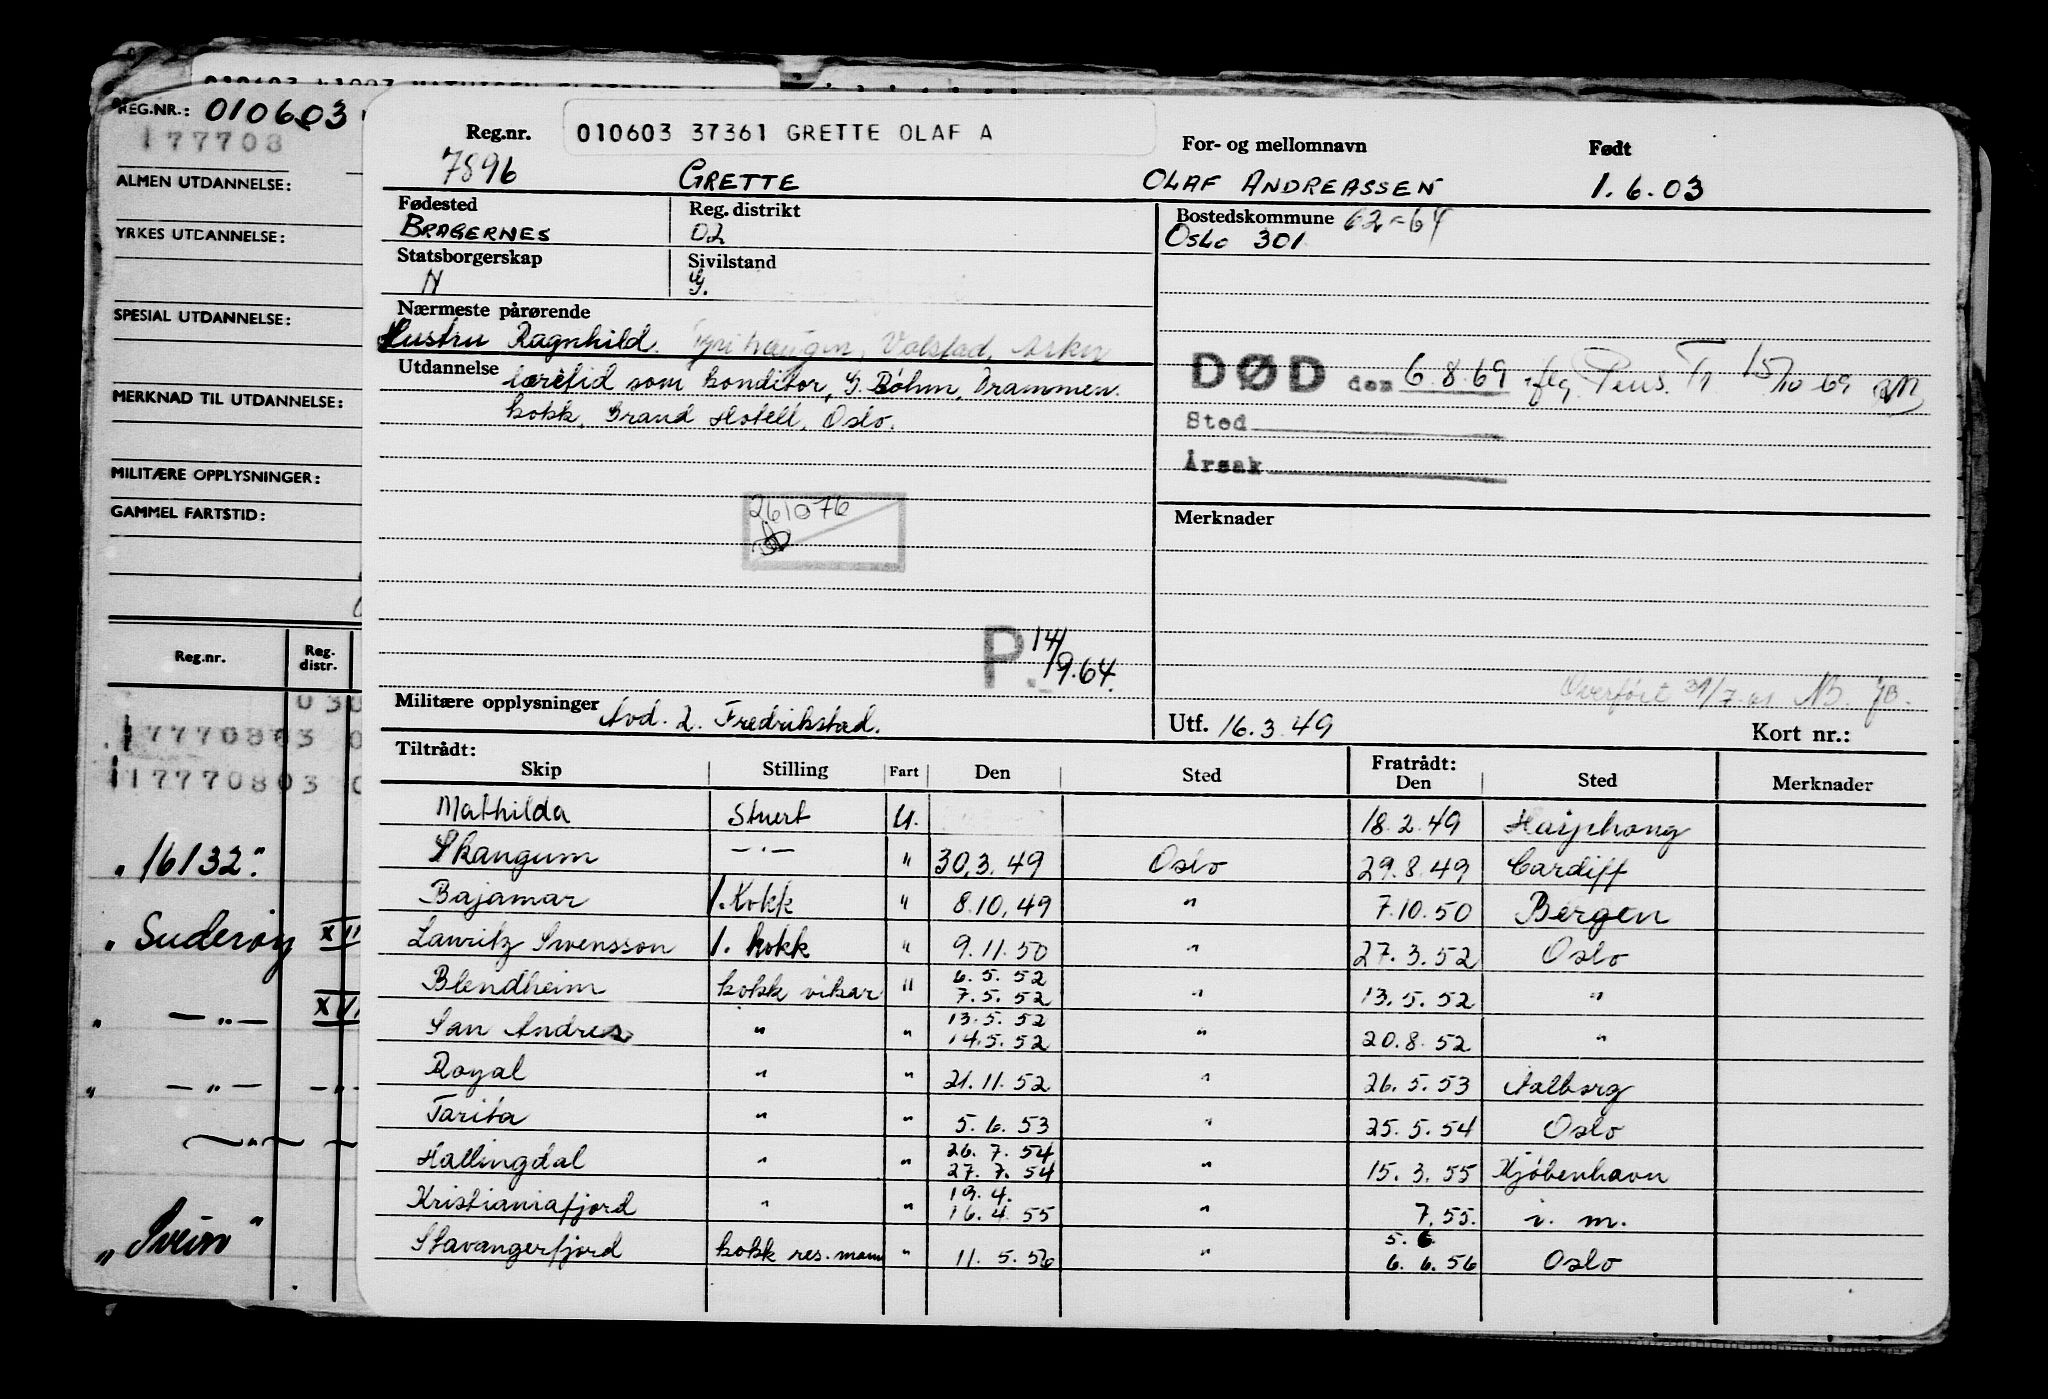 REG.NR.: 010603
177708
ALMEN UTDANNELSE:
YRKES UTDANNELSE:
SPESIAL UTDANNELSE:
MERKNAD TIL UTDANNELSE:
MILITÆRE OPPLYSNINGER:
GAMMEL FARTSTID:
Reg.nr. Reg. distr.
030
17770803 0
17770803 0
"16132"
" Suderøy XII
" — " — XVI
" — " — — " —
— " —
"Svein"
Reg.nr. 010603 37361 GRETTE OLAF A For- og mellomnavn Født
7896 GRETTE OLAF ANDREASSEN 1.6.03
Fødested Reg. distrikt Bostedskommune 62-64
BRAGERNES 02 Oslo 301
Statsborgerskap Sivilstand
N G.
Nærmeste pårørende
Hustru Ragnhild. Valstad, Asker
Utdannelse læretid som konditor, G. Bøhm, Drammen.
kokk, Grand Hotell, Oslo.
DØD den 6.8.69 iflg. Pens. Tr 15/10-69
Sted
Årsak
261076
Merknader
P. 14/9.64.
Overført 31/7.61
Militære opplysninger Avd. 2. Fredrikstad. Utf. 16.3.49 Kort nr.:
Tiltrådt: Fratrådt:
Skip Stilling Fart Den Sted Den Sted Merknader
Mathilda Stuert U. 18.2.49 Haiphong
Skaugum — " — " 30.3.49 Oslo 29.8.49 Cardiff
Bajamar 1. Kokk " 8.10.49 " 7.10.50 Bergen
Lauritz Swensson 1. kokk " 9.11.50 27.3.52 Oslo
Blendheim kokk vikar " 6.5.52 7.5.52 " 13.5.52 "
San Andres " " 13.5.52 14.5.52 " 20.8.52 "
Royal " " 21.11.52 " 26.5.53 Aalborg
Tarita " " 5.6.53 " 25.5.54 Oslo
Hallingdal " " 26.7.54 27.7.54 " 15.3.55 Kjøbenhavn
Kristianiafjord " " 19.4. 16.4.55 " 7.55. i. m.
Stavangerfjord kokk res. mann " 11.5.56 " 5.6 6.6.56 Oslo